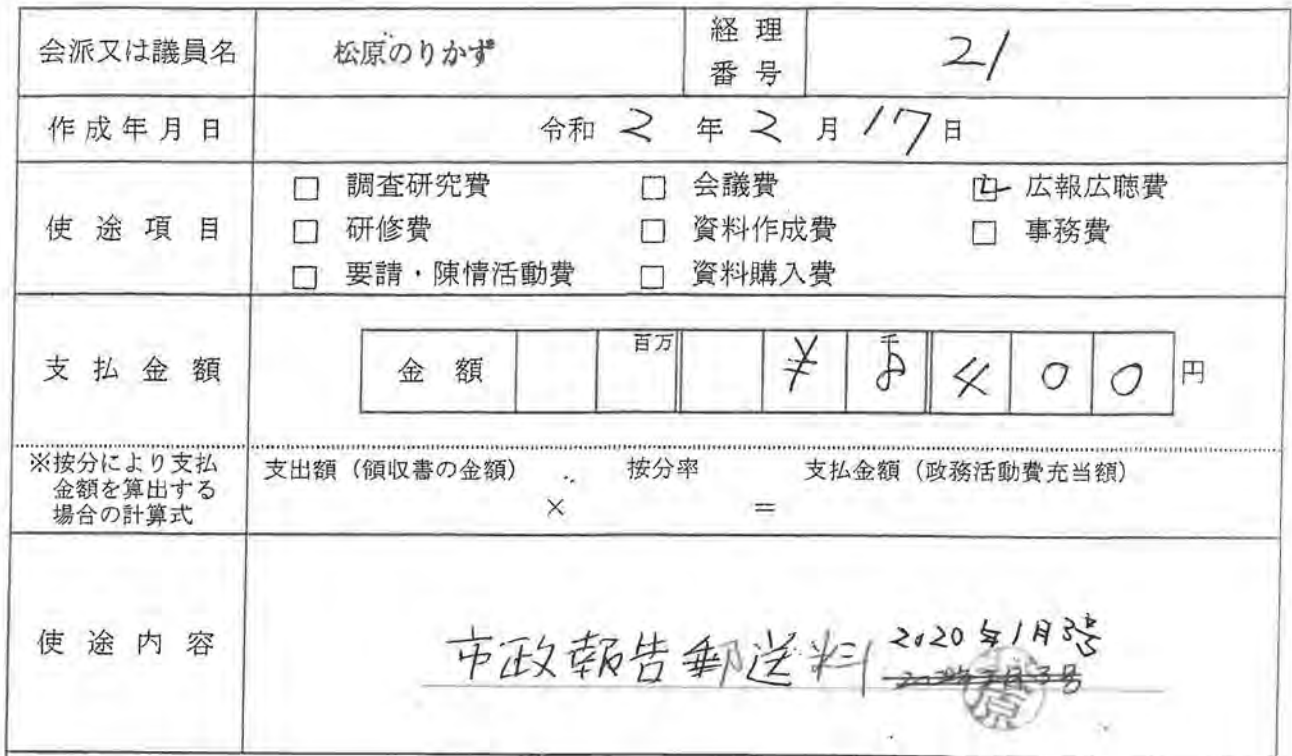 会派又は議員名 松原のりかず 経理番号 21
作成年月日 令和 2 年 2 月 17 日
使途項目
□ 調査研究費 □ 会議費 ☑ 広報広聴費
□ 研修費 □ 資料作成費 □ 事務費
□ 要請・陳情活動費 □ 資料購入費
支払金額 金額 百万 ¥ 千 8 4 0 0 円
※按分により支払金額を算出する場合の計算式
支出額(領収書の金額) 按分率 支払金額(政務活動費充当額)
× =
使途内容
市政報告郵送料 2020年1月3号